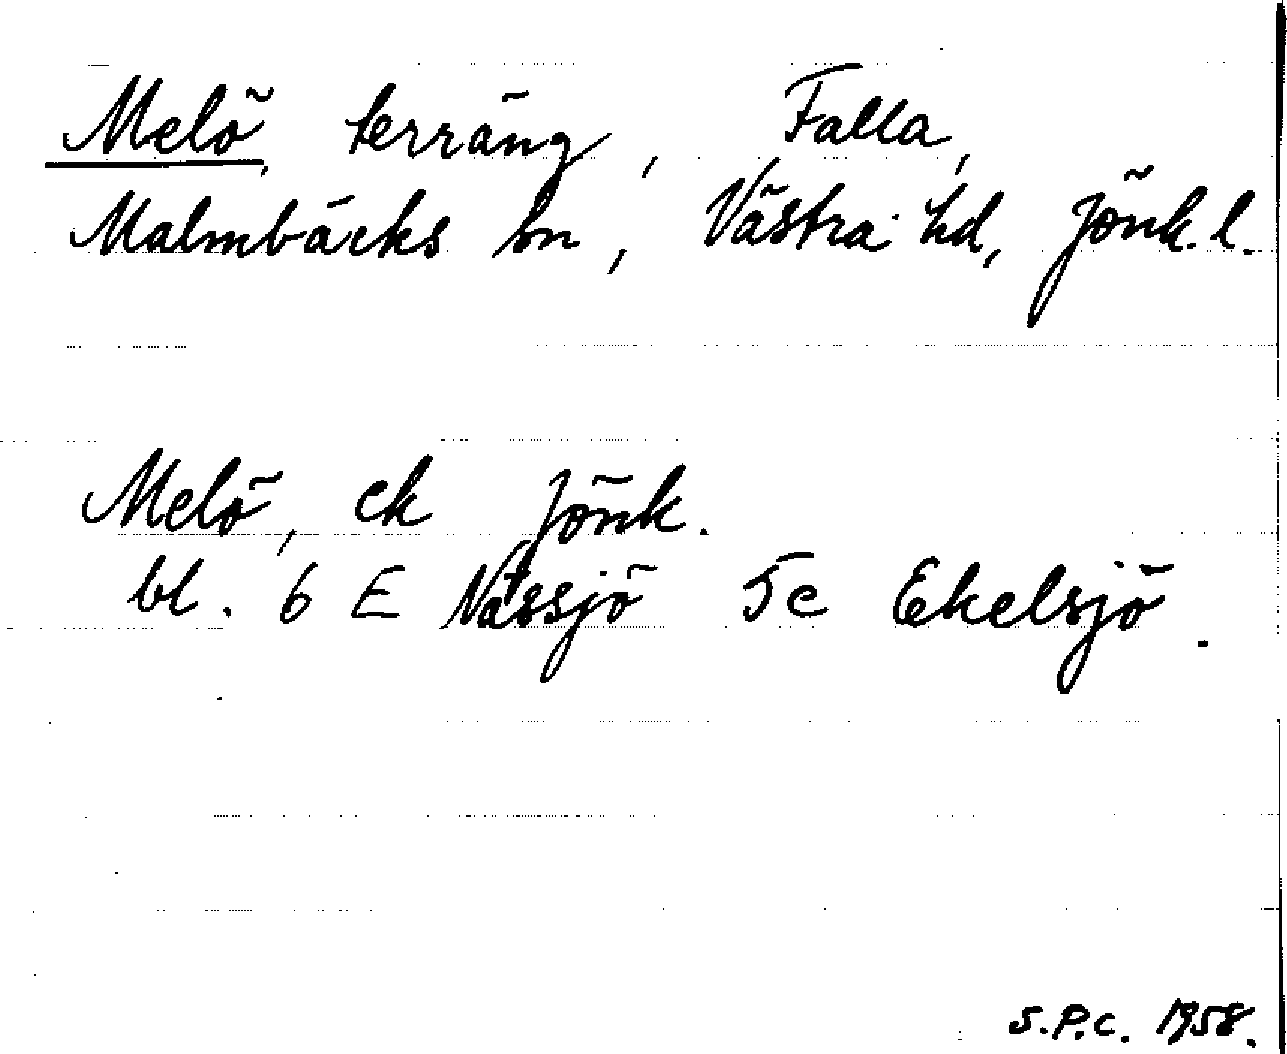 Melö, terräng, Falla,
Malmbäcks sn, Västra hd, Jönk. l.
Melö, ek Jönk.
bl. 6 E Nässjö 5e Ekelsjö.
S.P.C. 1958.